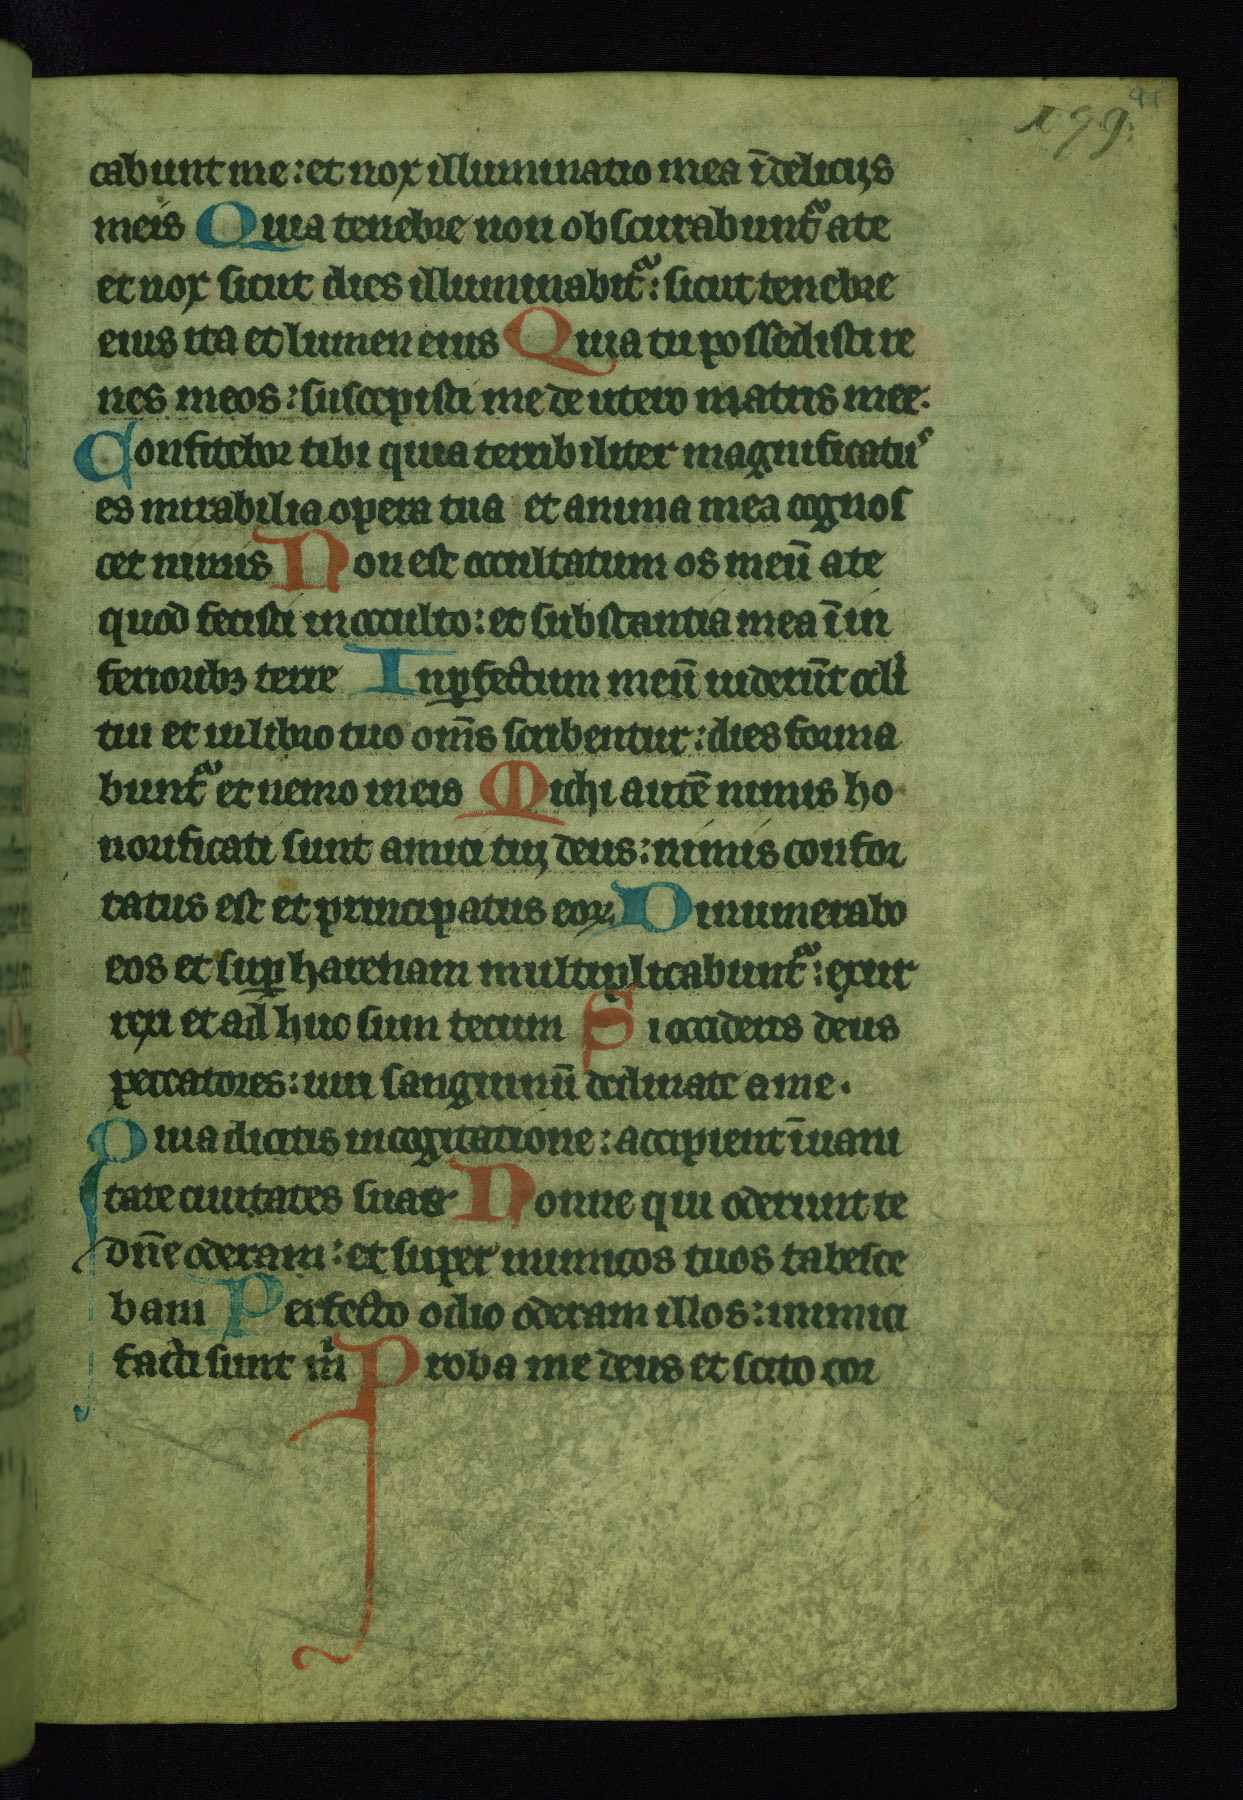 91
199.
cabunt me : et nox illuminatio mea ī deliciis
meis Quia tenebre non obscurabunt᷑ a te
et nox sicut dies illuminabit᷑ : sicut tenebre
eius ita et lumen eius Quia tu possedisti re
nes meos : suscepisti me de utero matris mee.
Confitebor tibi quia terribiliter magnificatuˢ
es mirabilia opera tua et anima mea cognos
cet nimis Non est occultatum os meū a te
quod fecisti in occulto : et substantia mea ī in
ferioribꝫ terre Inꝑfectum meū uiderūt oculi
tui et in libro tuo om̄s scribentur : dies forma
bunt᷑ et nemo in eis Michi autē nimis ho
norificati sunt amici tui deus : nimis confor
tatus est et principatus eoꝝ Dinumerabo
eos et suꝑ harenam multiplicabunt᷑ : exur
rexi et ad huc sum tecum Si occideris deus
peccatores : uiri sanguinū declinate a me .
Quia dicitis in cogitatione : accipient ī uani
tate ciuitates suas Nonne qui oderunt te
dn̄e oderam : et super inimicos tuos tabesce
bam Perfecto odio oderam illos : inimici
facti sunt m̄i Proba me deus et scito cor